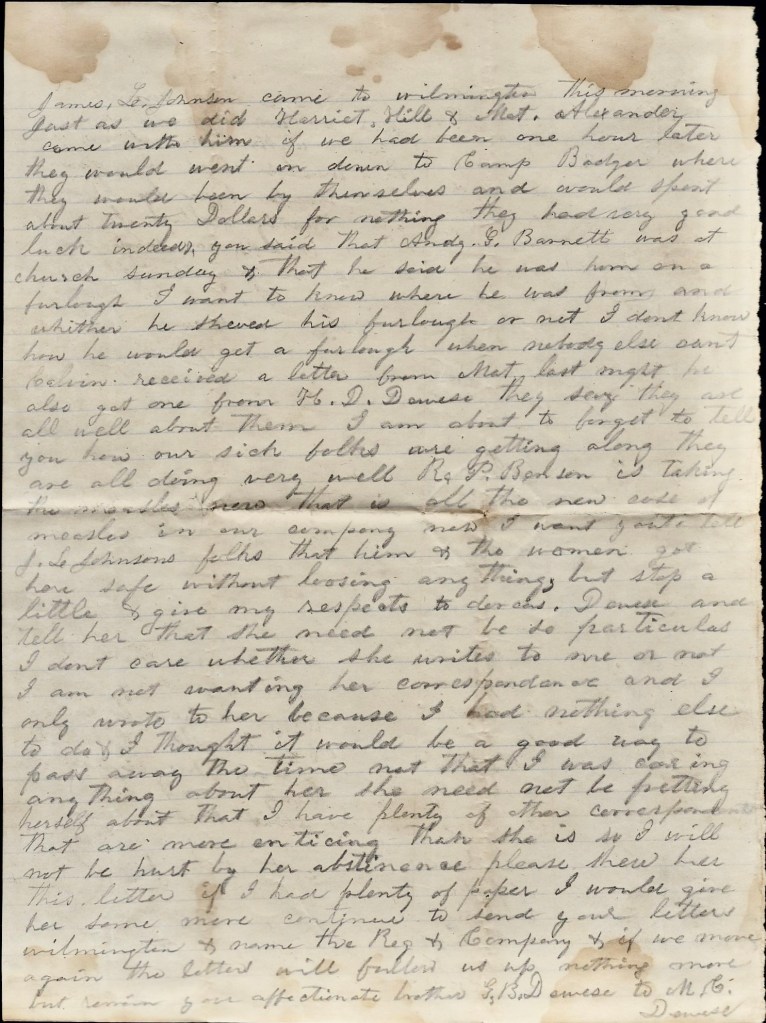 James, L. Johnson came to wilmington this morning
Just as we did Harriet, Hill & Mat. Alexander
came with him if we had been one hour later
they would went on down to Camp Badger where
they would been by themselves and would spent
about twenty Dollars for nothing they had very good
luck indeed, you said that Andy. G. Barnett was at
church sunday & that he said he was hom on a
furlough I want to know where he was from, and
whither he shewed his furlough or not I dont know
how he would get a furlough when nobody else can't
Calvin. received a letter from Mat, last night he
also got one from H. D. Dewese they say they are
all well about them I am about to forget to tell
you how our sick folks are getting along they
are all doing very well R. P. Benson is taking
the measles now that is all the new case of
measles in our company now I want you to tell
J. L. Johnsons folks that him & the women got
here safe without loosing any thing, but stop a
little & give my respects to dorcas. Dewese and
tell her that she need not be so particular
I dont care whether she writes to me or not
I am not wanting her correspondence and I
only wrote to her because I had nothing else
to do & I thought it would be a good way to
pass away the time not that I was caring
any thing about her she need not be fretting
herself about that I have plenty of other correspondents
that are more enticing than she is so I will
not be hurt by her abstinence please shew her
this letter if I had plenty of paper I would give
her some more continue to send your letters
wilmington & name the Reg & Company & if we move
again the letters will follow us up nothing more
but remain your affectionate brother G. B. Dewese to M. C.
Dewese